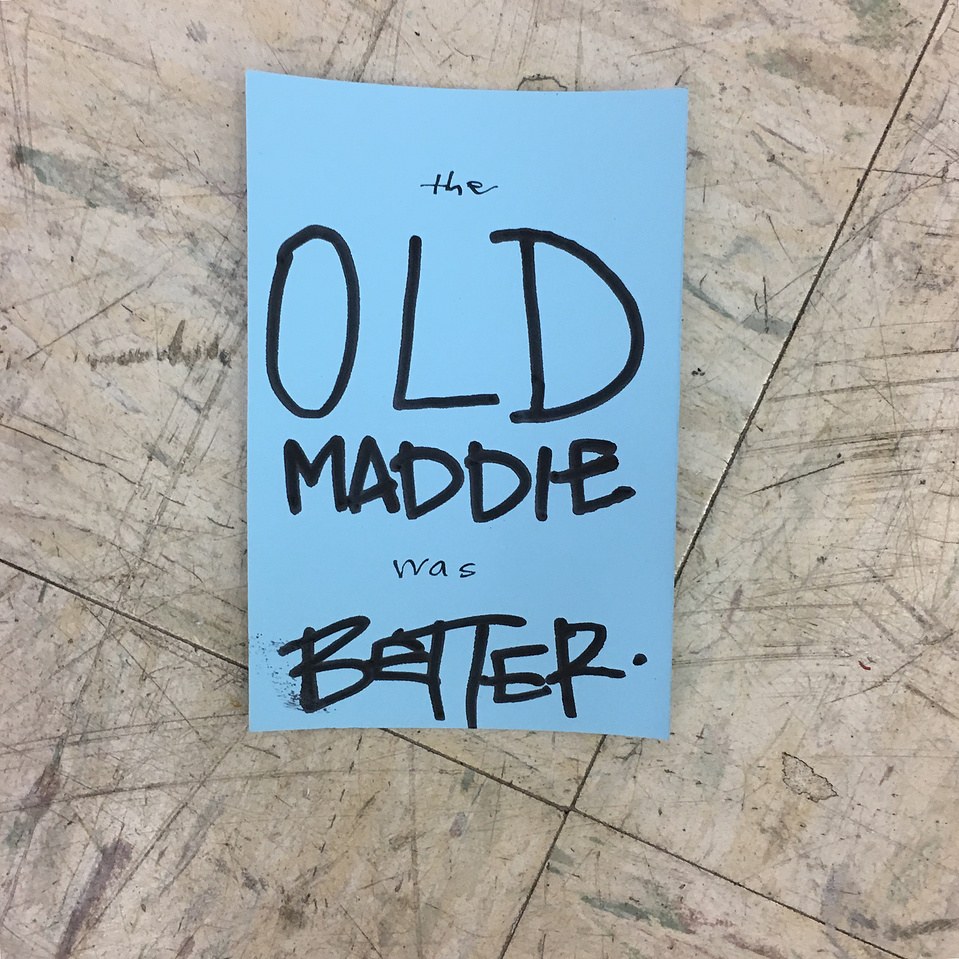 the
OLD
MADDIE
was
BETTER.